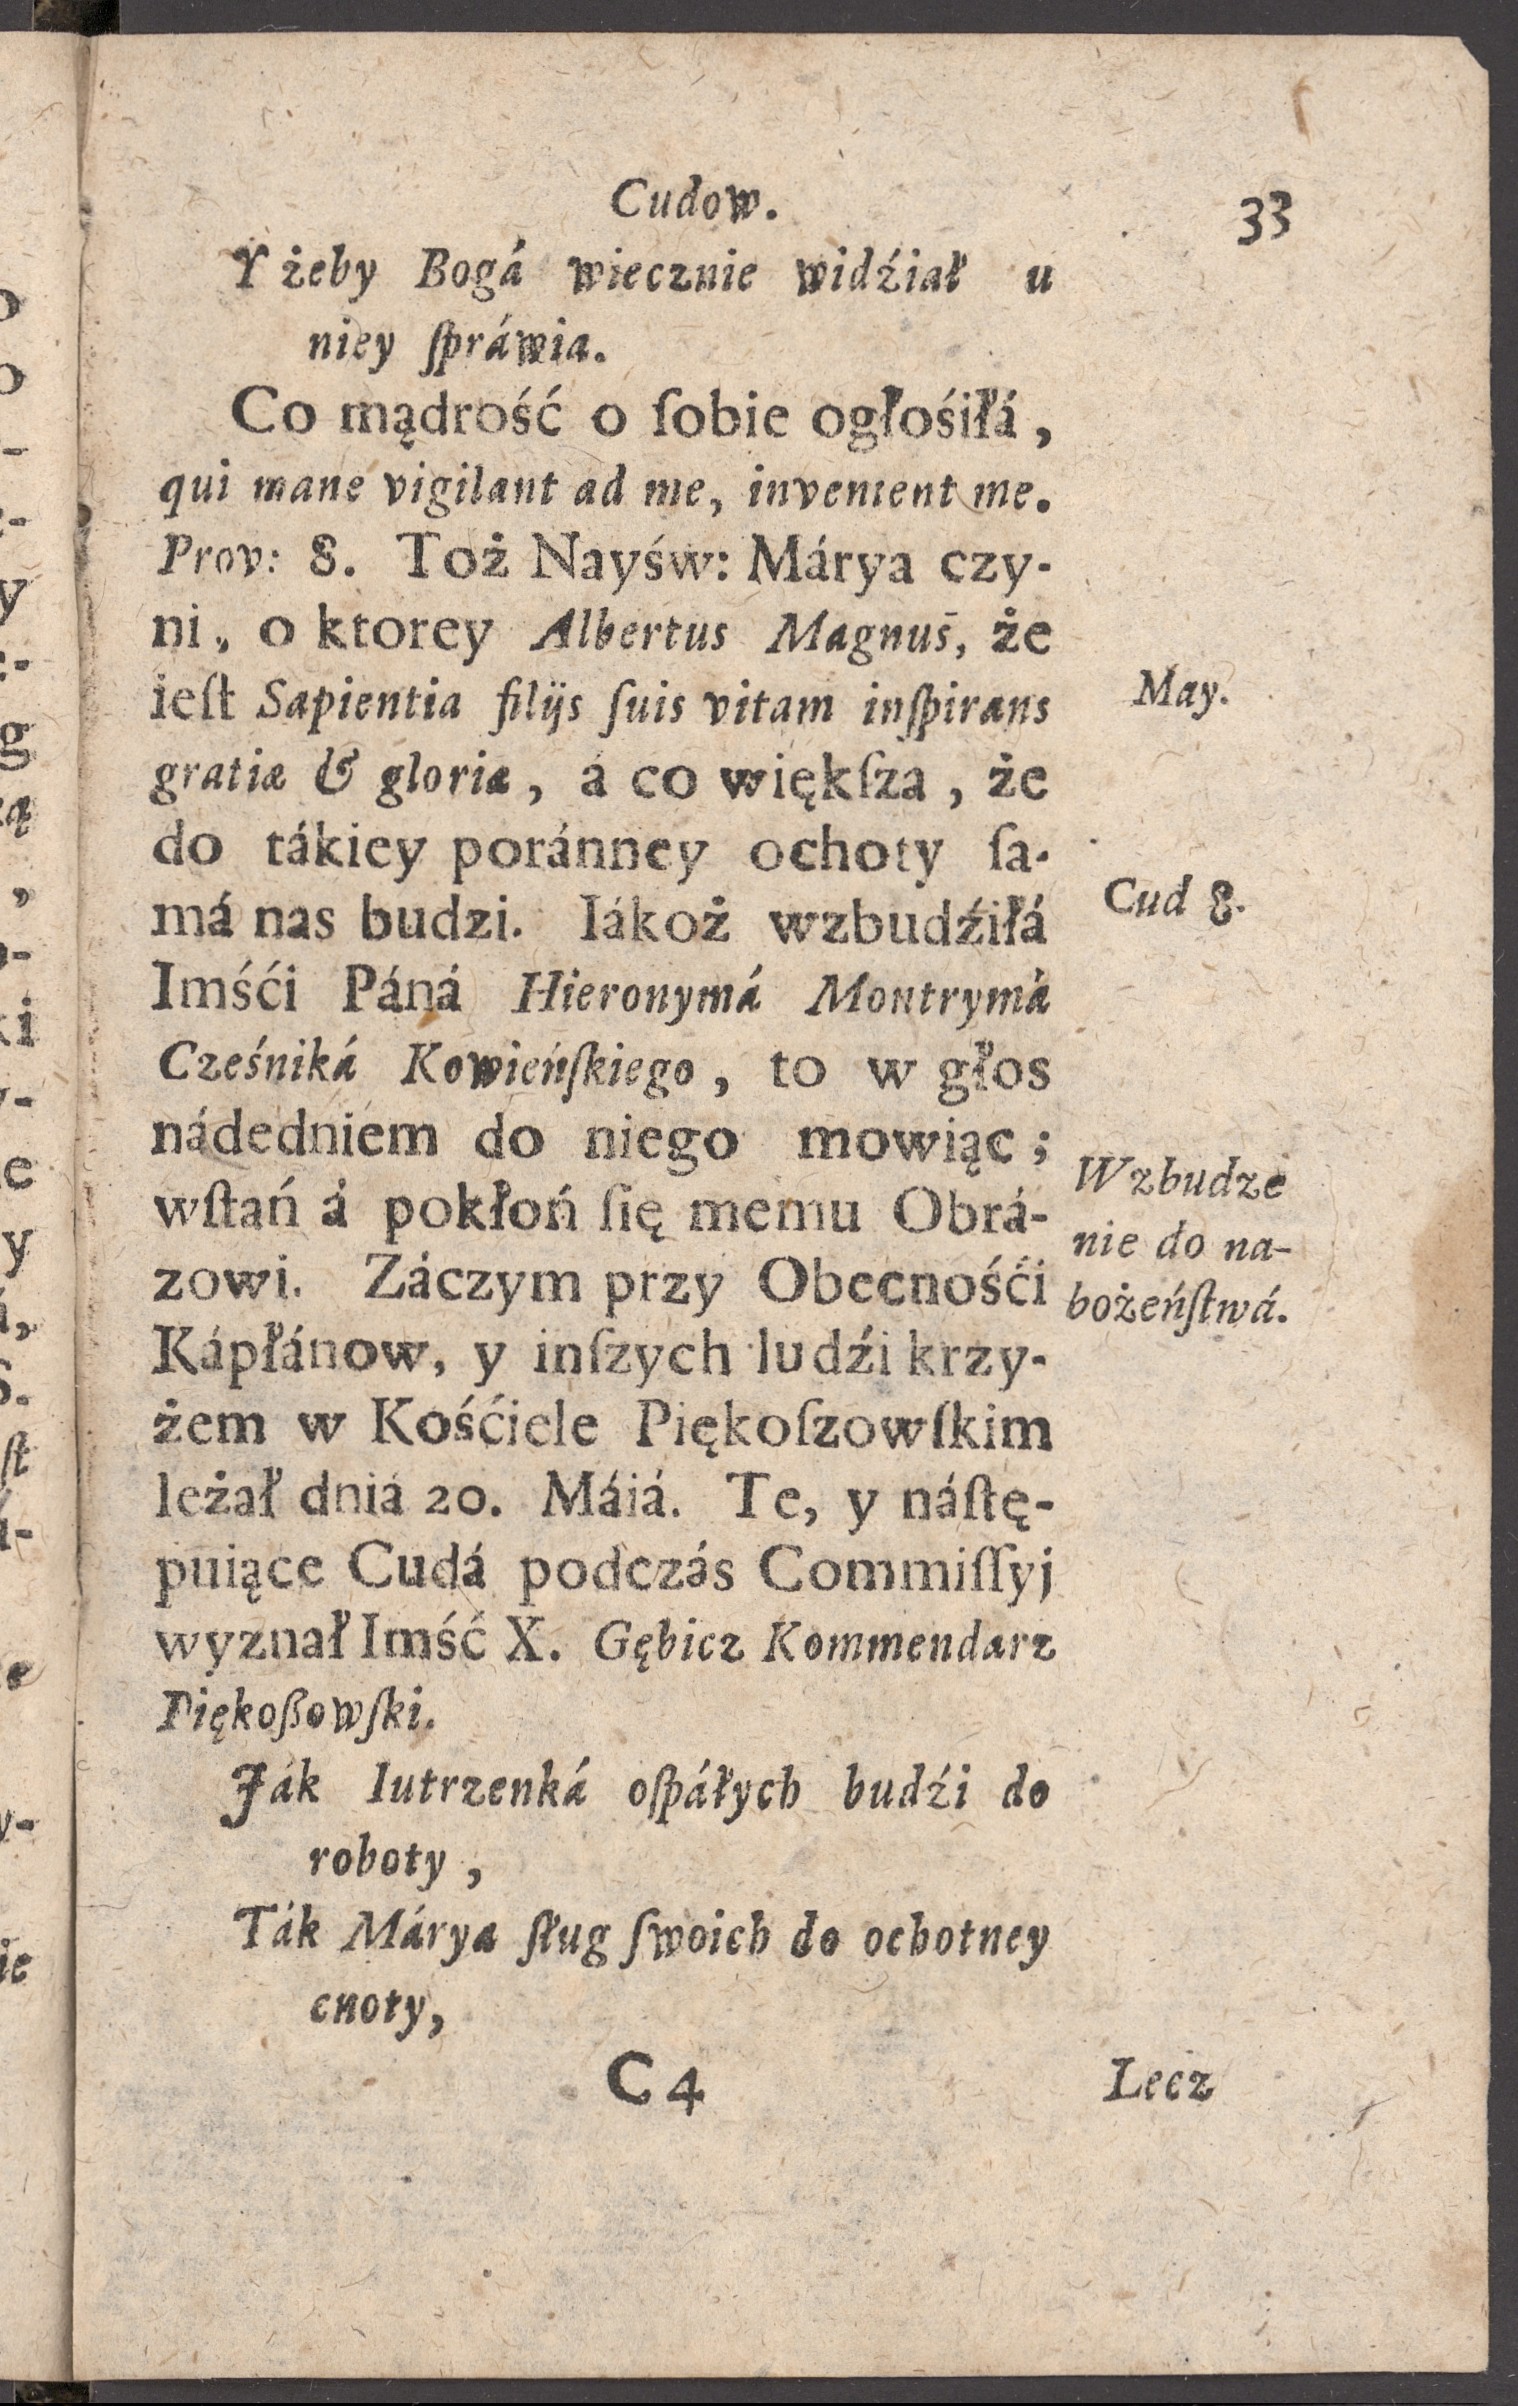 Cudow.
33
Y żeby Bogá wiecznie widźiał u
niey ſpráwia.
Co mądrość o ſobie ogłośiłá,
qui mane vigilant ad me, invenient me.
Prov: 8. Toż Nayśw: Márya czy-
ni, o ktorey Albertus Magnus, że
ieſt Sapientia filijs ſuis vitam inſpirans
gratiæ & gloriæ, á co więkſza, że
do tákiey poránney ochoty ſa-
má nas budzi. Iákoż wzbudźiłá
Imśći Páná Hieronymá Montrymá
Cześniká Kowieńſkiego, to w głos
nádedniem do niego mowiąc;
wſtań á pokłoń ſię memu Obrá-
zowi. Záczym przy Obecnośći
Kápłánow, y inſzych ludźi krzy-
żem w Kośćiele Piękoſzowſkim
leżał dniá 20. Máiá. Te, y náſtę-
puiące Cudá podczás Commiſſyj
wyznał Imść X. Gębicz Kommendarz
Piękoßowſki.
Ják Iutrzenká oſpáłych budźi do
roboty,
Ták Márya ſług ſwoich do ochotney
cnoty,
C4
Lecz
May.
Cud 8.
Wzbudze
nie do na-
bożeńſtwá.